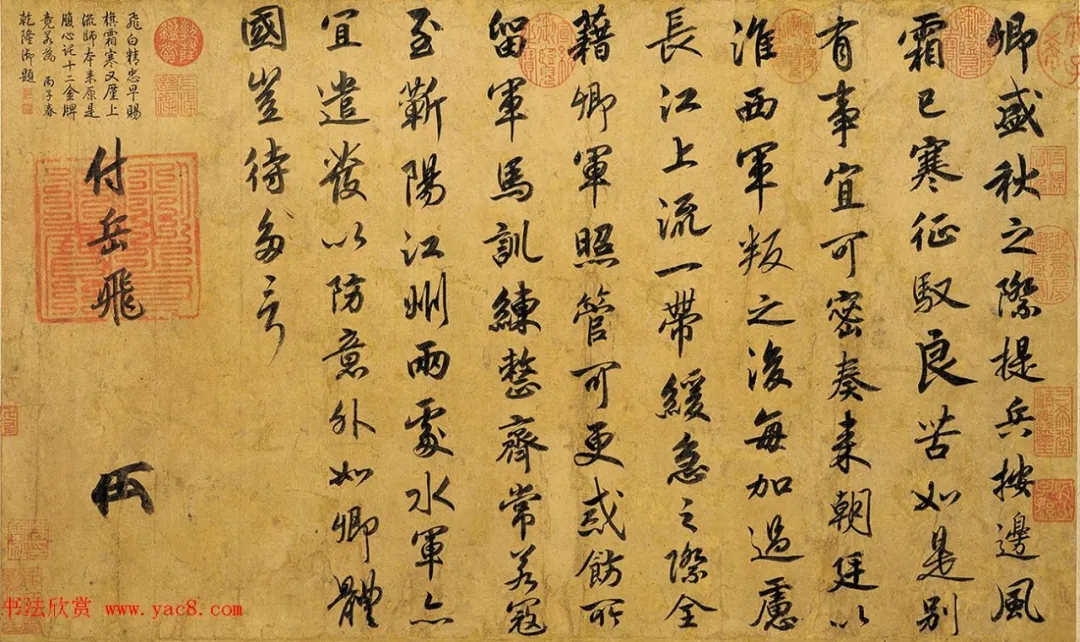 卿盛秋之際提兵按邊風
霜已寒征馭良苦如是別
有事宜可密奏来朝廷以
淮西軍叛之後每加過慮
長江上流一帶緩急之際全
藉卿軍照管可更戒飭所
留軍馬訓練整齊常若寇
至蘄陽江州兩處水軍亦
宜遣發以防意外如卿體
國豈待多言
付岳飛
飛白精忠早賜
旗霜寒又厪上
流師本来原是
腹心託十二金牌
竟若為 丙子春
乾隆御題
书法欣赏 www.yac8.com